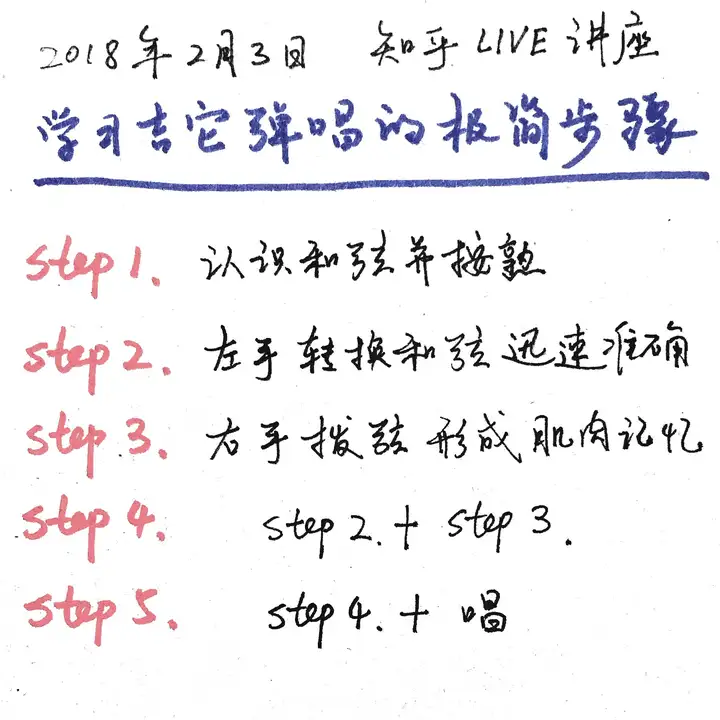 2018年2月3日 知乎 LIVE 讲座
学习吉它弹唱的极简步骤
step 1. 认识和弦并按熟
step 2. 左手转换和弦迅速准确
step 3. 右手拨弦形成肌肉记忆
step 4. step 2. + step 3.
step 5. step 4. + 唱